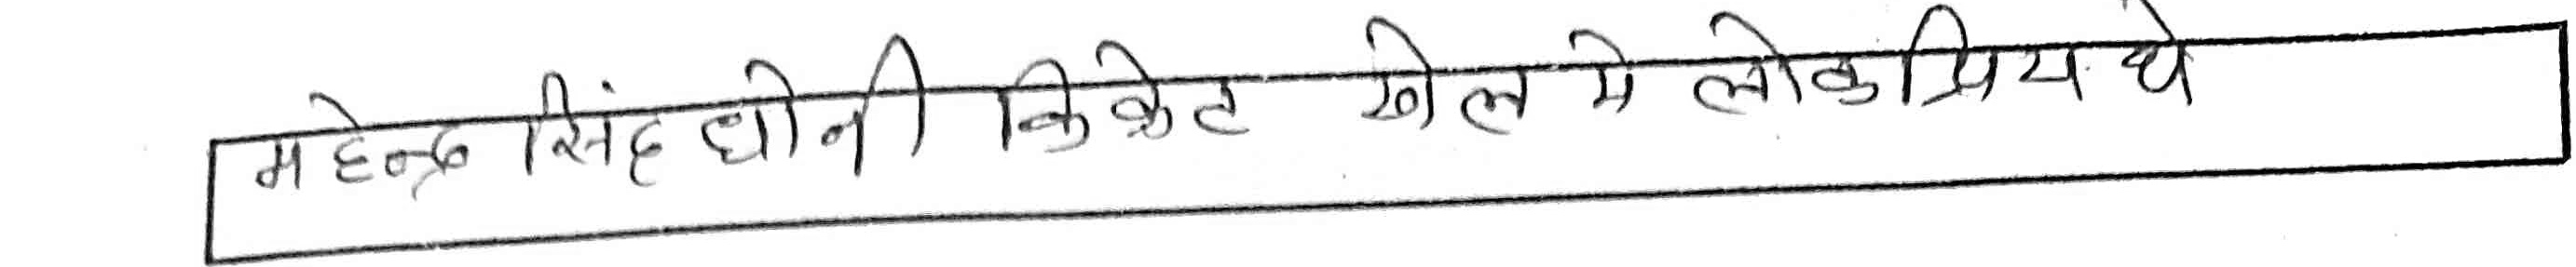 महेन्द्र सिंह धोनी किक्रेट खेल मे लोकप्रिय थे